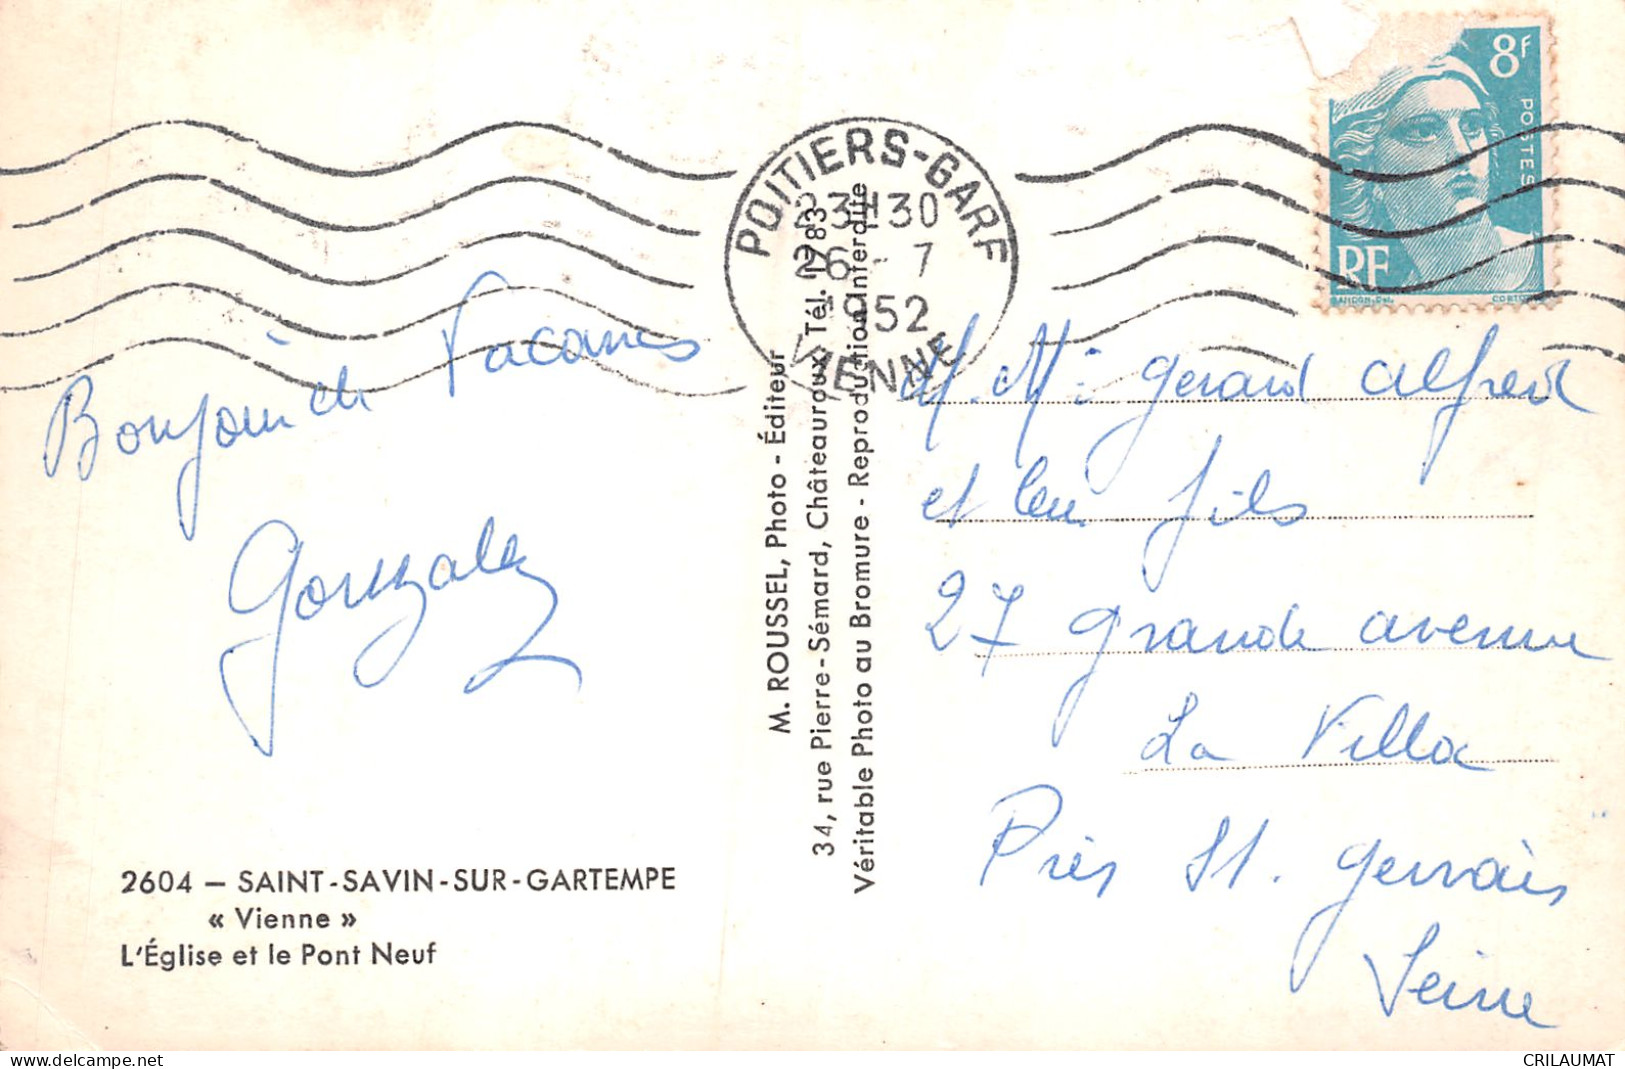 8F
POSTES
RF
GANDON.Del.
POITIERS-GARE
23H30
26-7
1952
VIENNE
Bonjour de Vacances
Gonzalez
2604 – SAINT-SAVIN-SUR-GARTEMPE
« Vienne »
L'Église et le Pont Neuf
M. ROUSSEL, Photo - Éditeur
34, rue Pierre-Sémard, Châteauroux, Tél. 1983
Véritable Photo au Bromure - Reproduction Interdite
M. Mme Gerard Alfred
et leur fils
27 grande avenue
La Villa
Près St. Gervais
Seine
CRILAUMAT